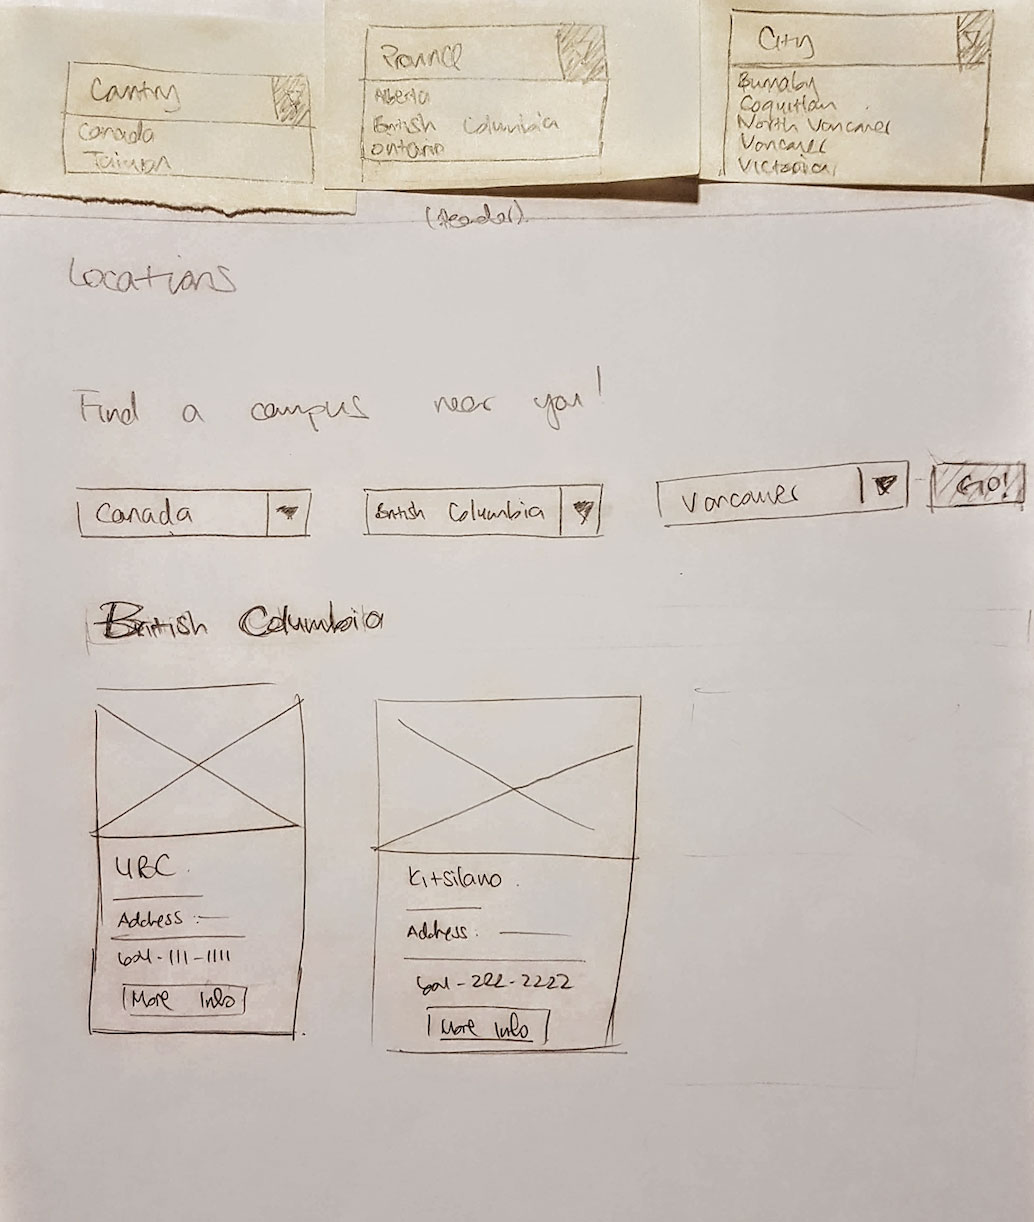 Country
Canada
Taiwan
Province
Alberta
British Columbia
Ontario
City
Burnaby
Coquitlam
North Vancouver
Vancouver
Victoria
(Header)
Locations
Find a campus near you!
Canada
British Columbia
Vancouver
Go!
British Columbia
UBC
Address:
604-111-1111
More Info
Kitsilano
Address:
604-222-2222
More Info